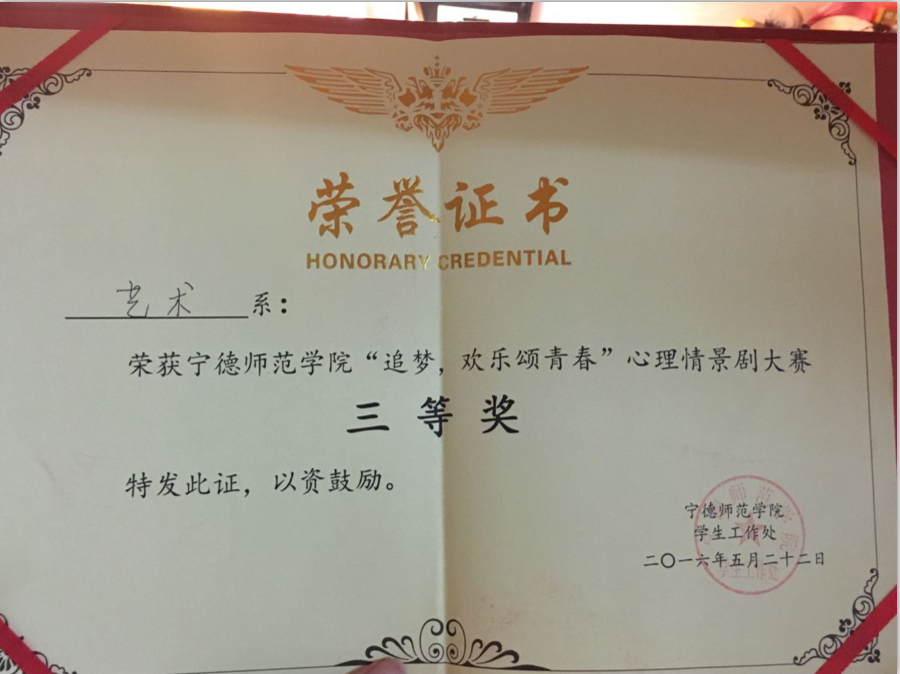 荣誉证书
HONORARY CREDENTIAL
艺术系：
荣获宁德师范学院“追梦，欢乐颂青春”心理情景剧大赛
三等奖
特发此证，以资鼓励。
宁德师范学院
学生工作处
二〇一六年五月二十二日
师范学院
学生工作处